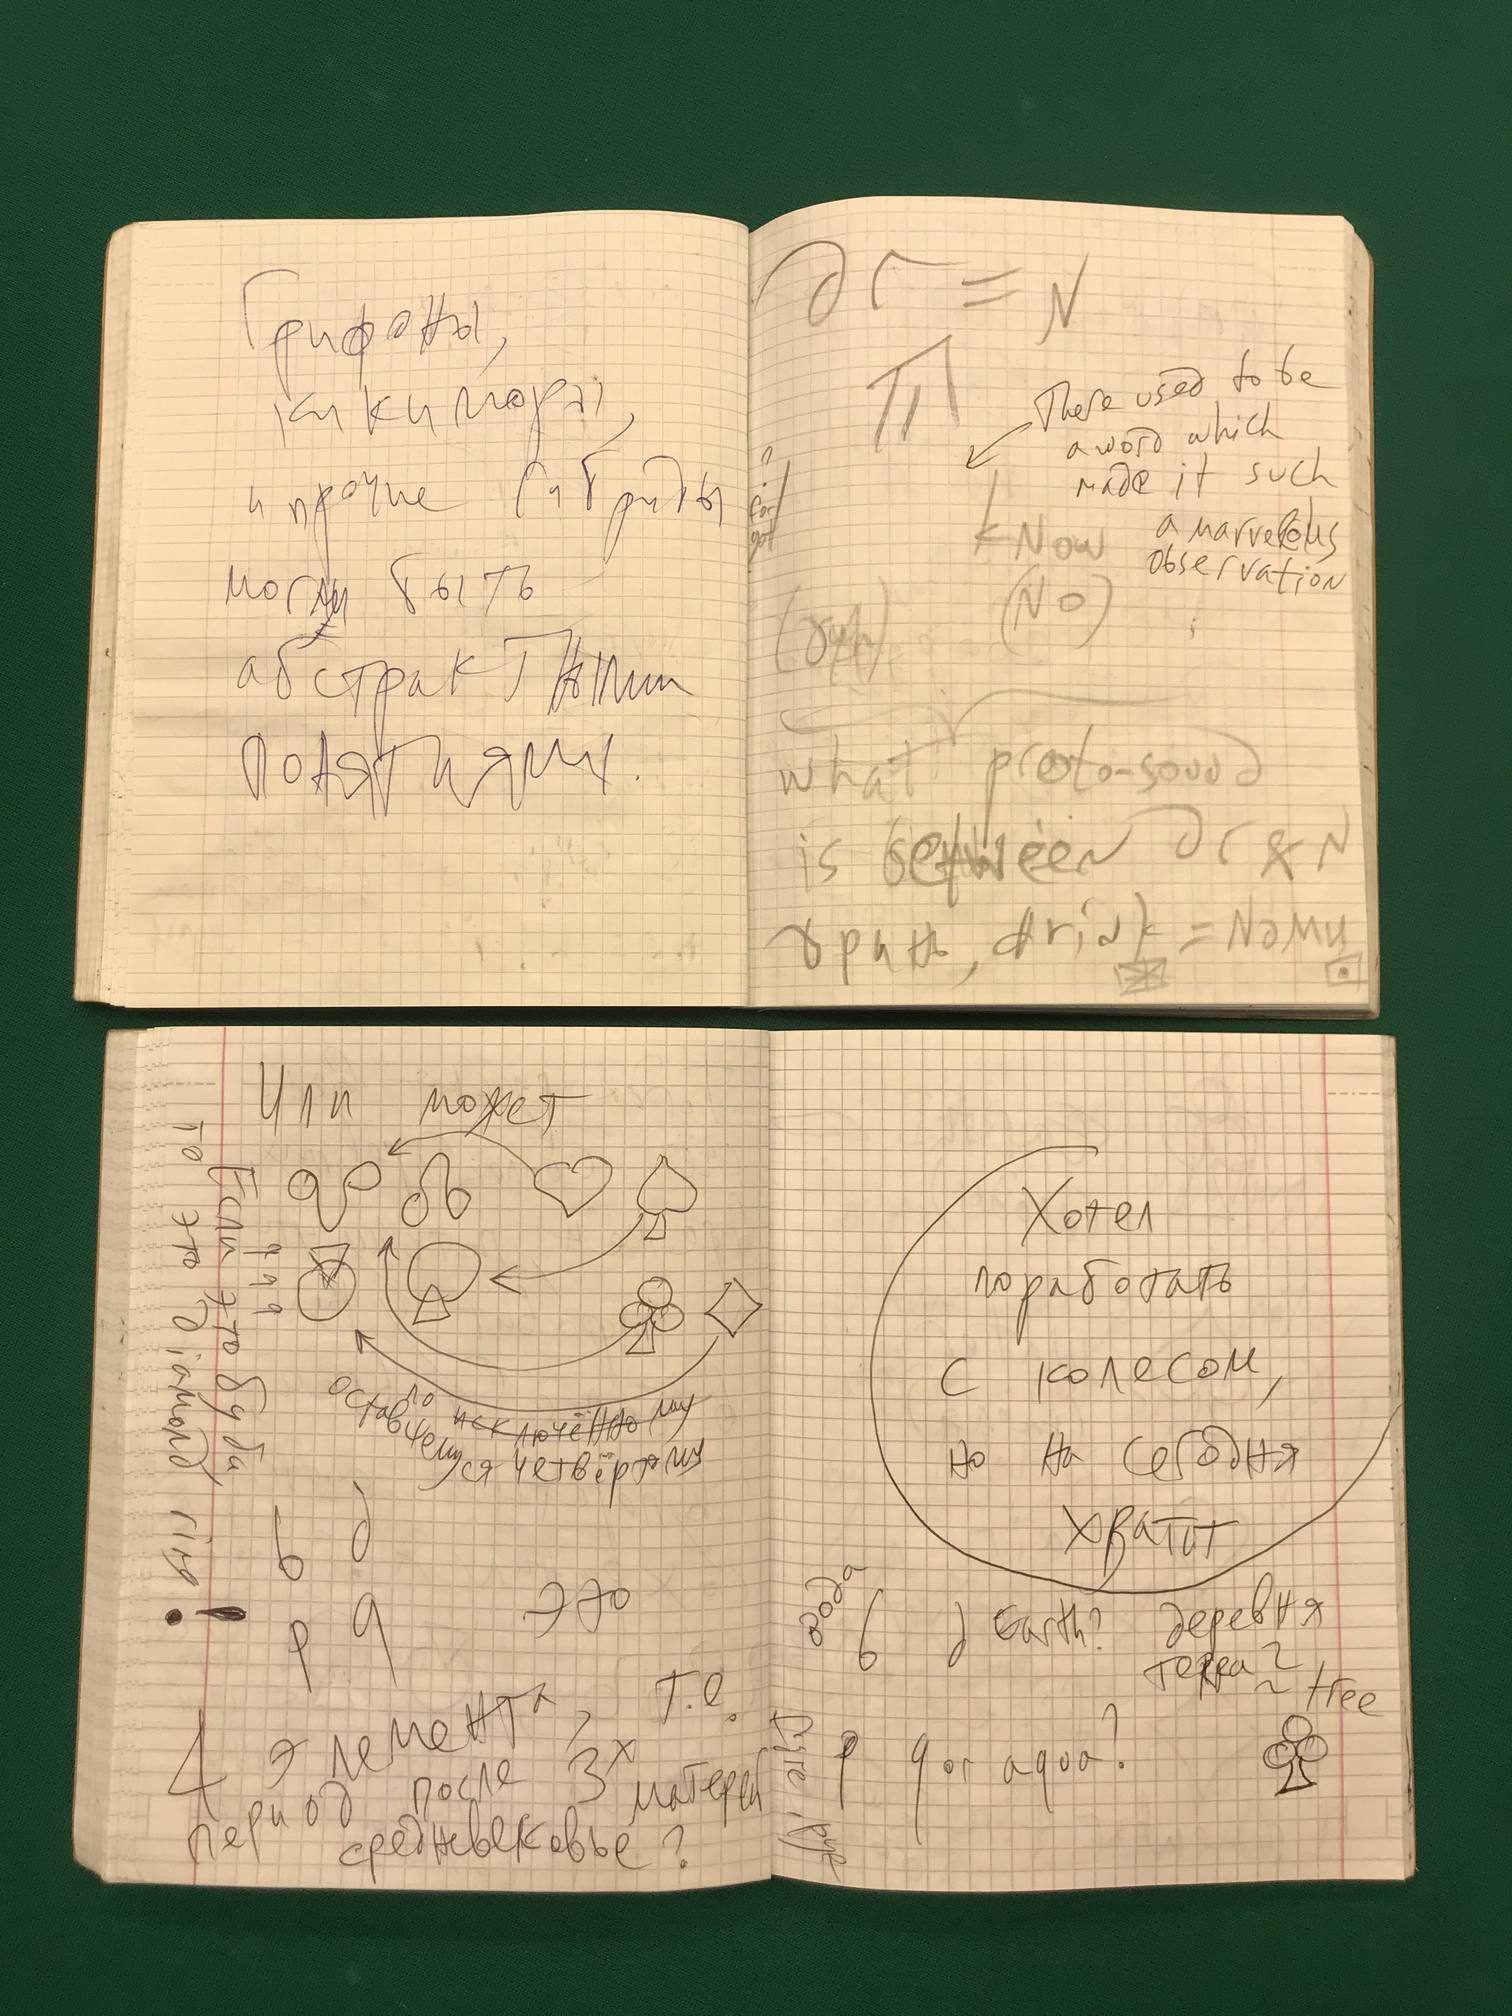 Грифоны,
кикиморы,
и прочие гибриды
могли быть
абстрактными
понятиями.
дг = N
П
There used to be
a word which
made it such
a marvelous
observation
?
for
got
kNow
(NO)
what proto-sound
is between дг & N
drink = NoMu
Или может
Если это будда
то это diamond ring!
оставшемуся четвёртому
6 д
p q это
4 элемента, т.е.
период после 3х матерей
средневековье?
Хотел
поработать
с колесом,
но на сегодня
хватит
вода
6 д Earth? деревня
терра?
tree
p q or aqua?